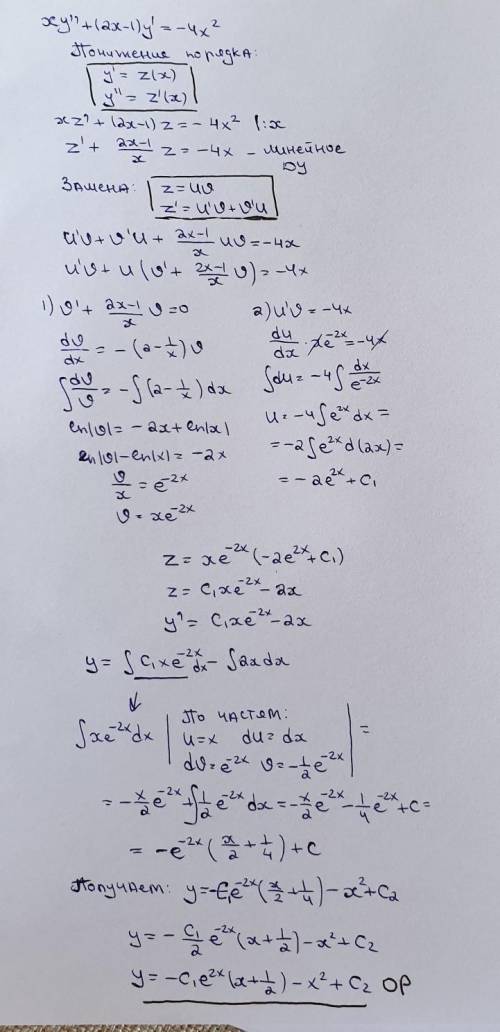 xy'' + (2x-1)y' = -4x²
Понижение порядка:
y' = z(x)
y'' = z'(x)
xz' + (2x-1)z = -4x² |:x
z' + (2x-1)/x z = -4x - линейное
ДУ
Замена: z = uϑ
z' = u'ϑ + ϑ'u
u'ϑ + ϑ'u + (2x-1)/x uϑ = -4x
u'ϑ + u(ϑ' + (2x-1)/x ϑ) = -4x
1) ϑ' + (2x-1)/x ϑ = 0
dϑ/dx = -(2 - 1/x)ϑ
∫dϑ/ϑ = -∫(2 - 1/x)dx
ln|ϑ| = -2x + ln|x|
ln|ϑ| - ln|x| = -2x
ϑ/x = e^(-2x)
ϑ = xe^(-2x)
2) u'ϑ = -4x
du/dx · xe^(-2x) = -4x
∫du = -4∫dx/e^(-2x)
u = -4∫e^(2x)dx =
= -2∫e^(2x)d(2x) =
= -2e^(2x) + C₁
z = xe^(-2x)(-2e^(2x) + C₁)
z = C₁xe^(-2x) - 2x
y' = C₁xe^(-2x) - 2x
y = ∫C₁xe^(-2x)dx - ∫2xdx
∫xe^(-2x)dx | По частям:
u = x du = dx
dϑ = e^(-2x) ϑ = -1/2 e^(-2x) | =
= -x/2 e^(-2x) + ∫1/2 e^(-2x)dx = -x/2 e^(-2x) - 1/4 e^(-2x) + C =
= -e^(-2x)(x/2 + 1/4) + C
Получаем: y = -C₁e^(-2x)(x/2 + 1/4) - x² + C₂
y = -C₁/2 e^(-2x)(x + 1/2) - x² + C₂
y = -C₁e^(2x)(x + 1/2) - x² + C₂ ОР